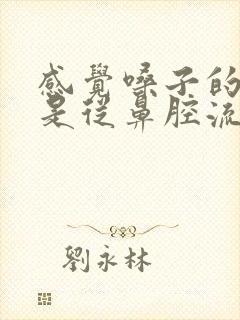 感覺嗓子的
是從鼻腔流
劉永林